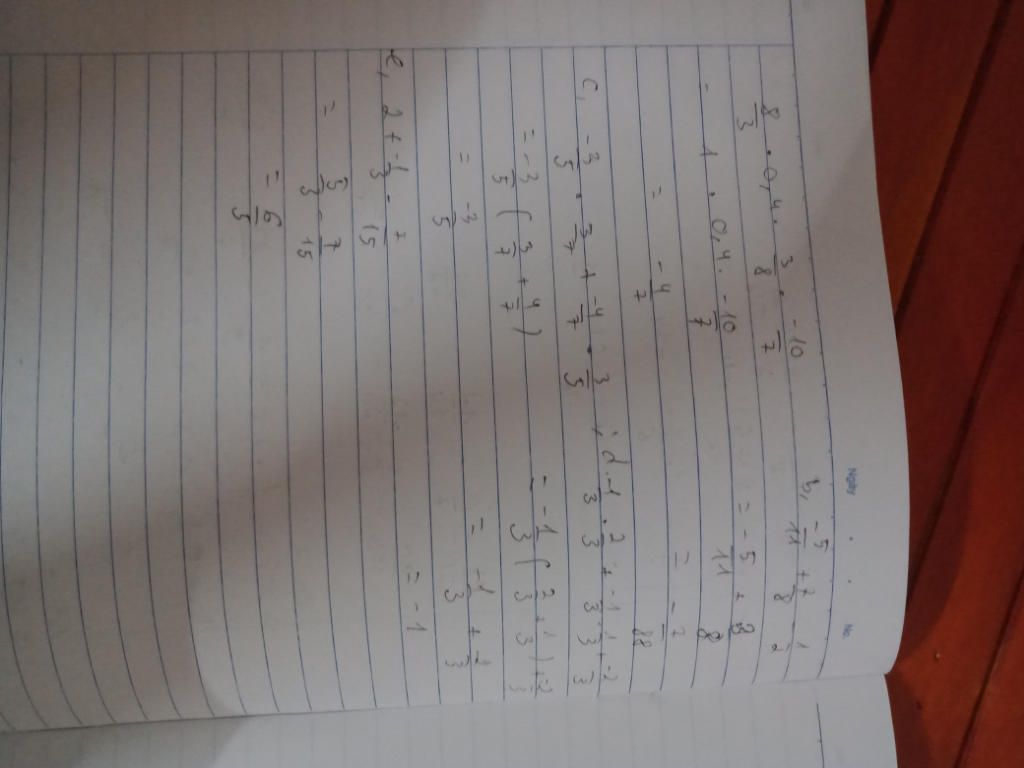 Ngày . . No.
8/3 . 0,4 . 3/8 . -10/7
- 1 . 0,4 . -10/7
= -4/7
b, -5/11 + 7/8 - 1/2
= -5/11 + 3/8
= -7/88
c, -3/5 . 3/7 + -4/7 . 3/5
= -3/5 ( 3/7 + 4/7 )
= -3/5
; d -1/3 . 2/3 + -1/3 . 1/3 + -2/3
= -1/3 ( 2/3 + 1/3 ) + -2/3
= -1
e, 2 + -1/3 - 7/15
= 5/3 - 7/15
= 6/5